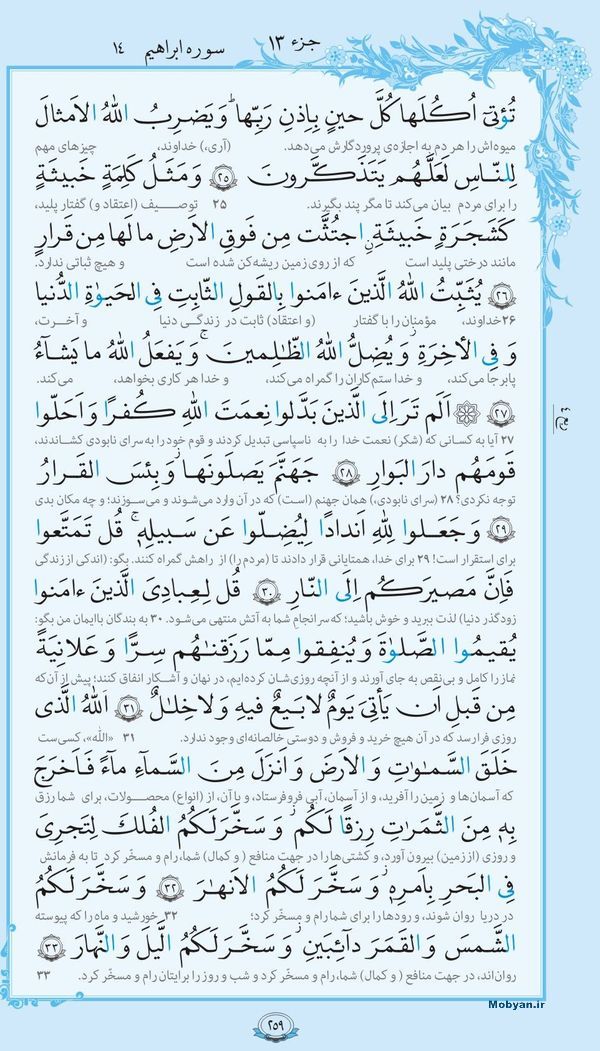 جزء ۱۳
سوره ابراهیم ۱۴
تُؤتیٓ اُكُلَها كُلَّ حینٍ بِاِذنِ رَبِّها ۗ وَ یَضرِبُ اللهُ الاَمثالَ
میوه‌اش را هر دم به اجازه‌ی پروردگارش می‌دهد. (آری،) خداوند، چیزهای مهم
لِلنّاسِ لَعَلَّهُم یَتَذَكَّرونَ ﴿۲۵﴾ وَ مَثَلُ كَلِمَةٍ خَبیثَةٍ
را برای مردم بیان می‌کند تا مگر پند بگیرند. ۲۵ توصـیف (اعتقاد و) گفتار پلید،
كَشَجَرَةٍ خَبیثَةٍ ۨاجتُثَّت مِن فَوقِ الاَرضِ ما لَها مِن قَرارٍ
مانند درختی پلید است که از روی زمین ریشه‌کن شده است و هیچ ثباتی ندارد.
﴿۲۶﴾ یُثَبِّتُ اللهُ الَّذینَ ءامَنوا بِالقَولِ الثّابِتِ فِی الحَیوٰةِ الدُّنیا
۲۶خداوند، مؤمنان را با گفتار (و اعتقاد) ثابت در زندگـی دنیا و آخـرت،
وَ فِی الآخِرَةِ ۖ وَ یُضِلُّ اللهُ الظّٰلِمینَ ۚ وَ یَفعَلُ اللهُ ما یَشآءُ
پابرجا می‌کند، و خدا ستم‌کاران را گمراه می‌کند، و خدا هر کاری بخواهد، می‌کند.
﴿۲۷﴾ اَلَم تَرَ اِلَی الَّذینَ بَدَّلوا نِعمَتَ اللهِ كُفرًا وَ اَحَلّوا
۲۷ آیا به کسانی که (شکر) نعمت خدا را به ناسپاسی تبدیل کردند و قوم خود را به سرای نابودی کشاندند،
قَومَهُم دارَ البَوارِ ﴿۲۸﴾ جَهَنَّمَ یَصلَونَها ۖ وَ بِئسَ القَرارُ
توجه نکردی؟ ۲۸ (سرای نابودی،) همان جهنم (است) که در آن وارد می‌شوند و می‌سوزند؛ و چه مکان بدی
﴿۲۹﴾ وَ جَعَلوا لِلّٰهِ اَندادًا لِیُضِلّوا عَن سَبیلِهٖ ۗ قُل تَمَتَّعوا
برای استقرار است! ۲۹ برای خدا، همتایانی قرار دادند تا (مردم را) از راهش گمراه کنند. بگو: (اندکی از زندگی
فَاِنَّ مَصیرَكُم اِلَی النّارِ ﴿۳۰﴾ قُل لِعِبادِیَ الَّذینَ ءامَنوا
زودگذر دنیا) لذت ببرید و خوش باشید؛ که سرانجامِ شما به آتش منتهی می‌شود. ۳۰ به بندگان باایمان من بگو:
یُقیمُوا الصَّلوٰةَ وَ یُنفِقوا مِمّا رَزَقنٰهُم سِرًّا وَ عَلانِیَةً
نماز را کامل و بی‌نقص به جای آورند و از آنچه روزی‌شان کرده‌ایم، در نهان و آشـکار انفاق کنند؛ پیش از آن‌که
مِن قَبلِ اَن یَأتِیَ یَومٌ لا بَیعٌ فیهِ وَ لا خِلالٌ ﴿۳۱﴾ اَللهُ الَّذی
روزی فرارسد که در آن هیچ خرید و فروش و دوستی خالصانه‌ای وجود ندارد. ۳۱ «الله»، کسی‌ست
خَلَقَ السَّمٰوٰتِ وَ الاَرضَ وَ اَنزَلَ مِنَ السَّمآءِ مآءً فَاَخرَجَ
که آسمان‌ها و زمین را آفرید، و از آسمان، آبی فروفرستاد، و با آن، از (انواع) محصـولات، برای شما رزق
بِهٖ مِنَ الثَّمَرٰتِ رِزقًا لَكُم ۖ وَ سَخَّرَ لَكُمُ الفُلكَ لِتَجرِیَ
و روزی (از زمین) بیرون آورد، و کشتی‌ها را در جهت منافع ( و کمال) شما، رام و مسخّر کرد تا به فرمانش
فِی البَحرِ بِاَمرِهٖ ۖ وَ سَخَّرَ لَكُمُ الاَنهٰرَ ﴿۳۲﴾ وَ سَخَّرَ لَكُمُ
در دریا روان شوند، و رودها را برای شما رام و مسخّر کرد؛ ۳۲ خورشید و ماه را که پیوسته
الشَّمسَ وَ القَمَرَ دآئِبَینِ ۖ وَ سَخَّرَ لَكُمُ الَّیلَ وَ النَّهارَ ﴿۳۳﴾
روان‌اند، در جهت منافع ( و کمال) شما، رام و مسخّر کرد و شب و روز را برایتان رام و مسخّر کرد. ۳۳
۲۵۹
Mobyan.ir